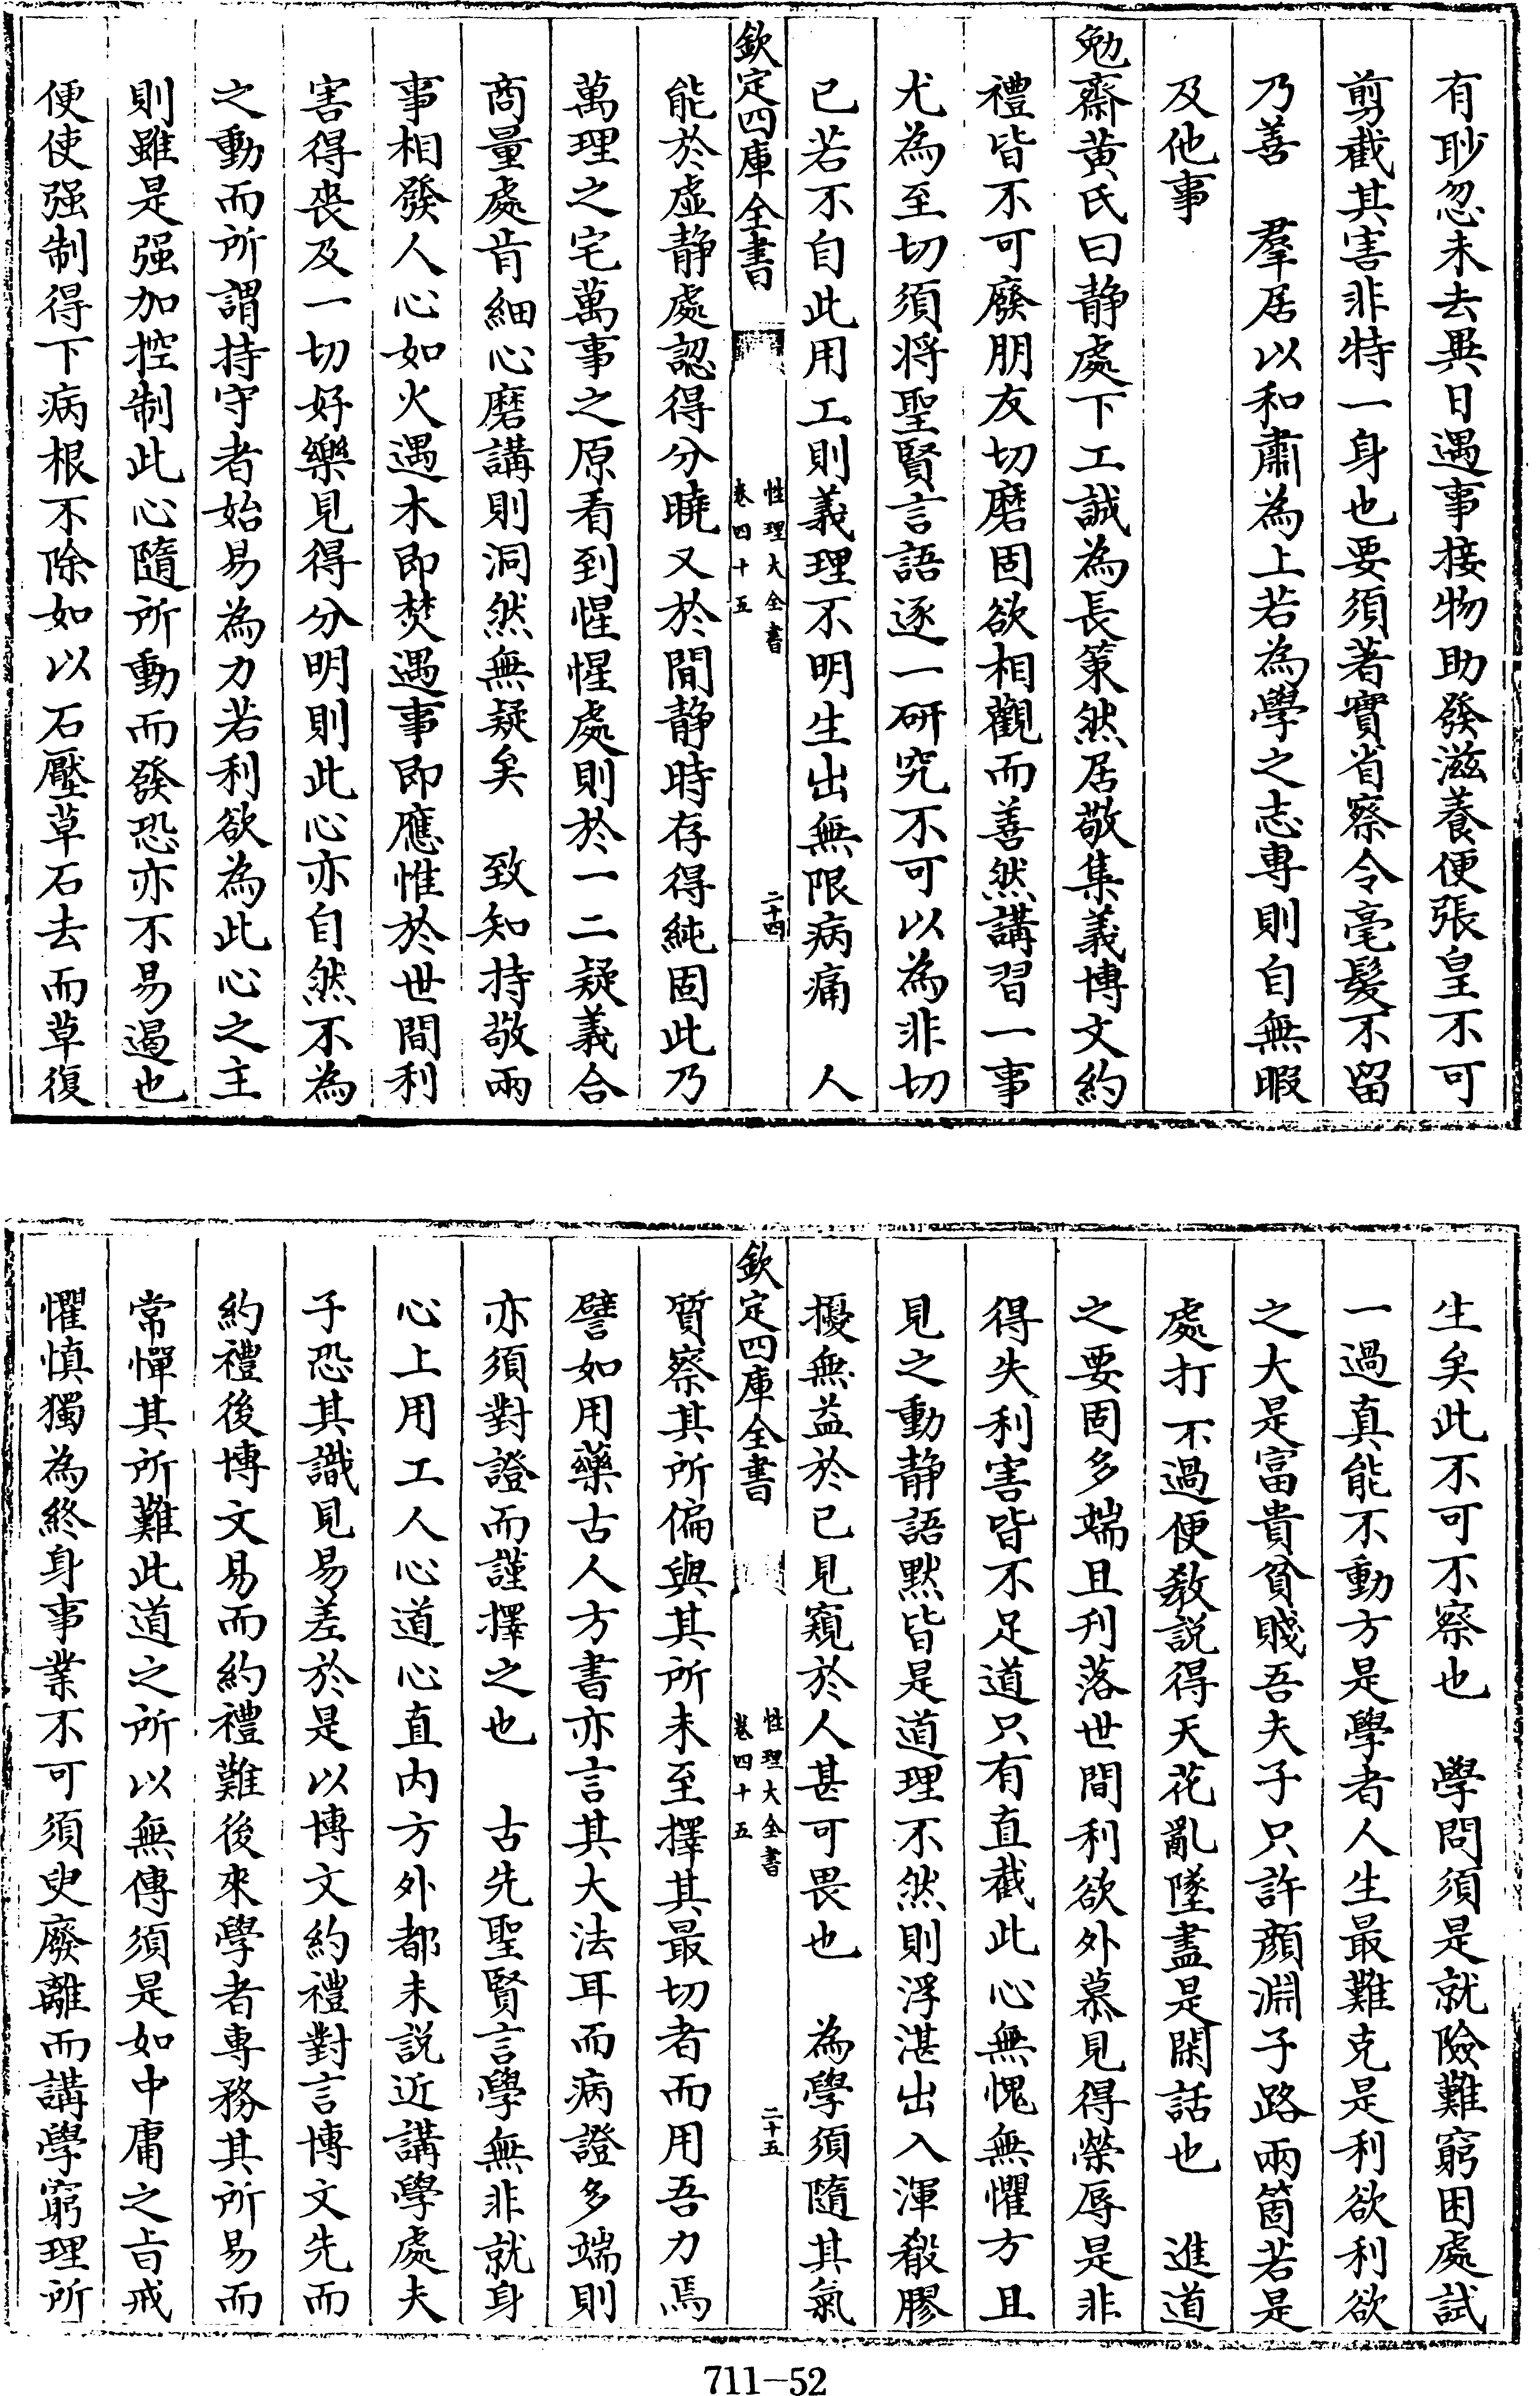 有眇忽未去異日遇事接物助發滋養便張皇不可
剪截其害非特一身也要須著實省察令毫髮不留
乃善　羣居以和肅為上若為學之志專則自無暇
及他事
勉齋黃氏曰静處下工誠為長策然居敬集義博文約
禮皆不可廢朋友切磨固欲相觀而善然講習一事
尤為至切須將聖賢言語逐一研究不可以為非切
已若不自此用工則義理不明生出無限病痛　人
欽定四庫全書
性理大全書
卷四十五
二十四
能於虛静處認得分曉又於間静時存得純固此乃
萬理之宅萬事之原看到惺惺處則於一二疑義合
商量處肯細心磨講則洞然無疑矣　致知持敬兩
事相發人心如火遇木即焚遇事即應惟於世間利
害得丧及一切好樂見得分明則此心亦自然不為
之動而所謂持守者始易為力若利欲為此心之主
則雖是强加控制此心隨所動而發恐亦不易遏也
便使强制得下病根不除如以石壓草石去而草復
生矣此不可不察也　學問須是就險難窮困處試
一過真能不動方是學者人生最難克是利欲利欲
之大是富貴貧賤吾夫子只許顔淵子路兩箇若是
處打不過便教説得天花亂墜盡是閑話也　進道
之要固多端且刋落世間利欲外慕見得榮辱是非
得失利害皆不足道只有直截此心無愧無懼方且
見之動静語黙皆是道理不然則浮湛出入渾殽膠
擾無益於已見窺於人甚可畏也　為學須隨其氣
欽定四庫全書
性理大全書
卷四十五
二十五
質察其所偏與其所未至擇其最切者而用吾力焉
譬如用藥古人方書亦言其大法耳而病證多端則
亦須對證而謹擇之也　古先聖賢言學無非就身
心上用工人心道心直内方外都未説近講學處夫
子恐其識見易差於是以博文約禮對言博文先而
約禮後博文易而約禮難後來學者專務其所易而
常憚其所難此道之所以無傳須是如中庸之㫖戒
懼慎獨為終身事業不可須臾廢離而講學窮理所
711-52